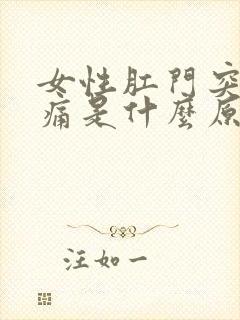 女性肛門突
痛是什麼原
汪如一